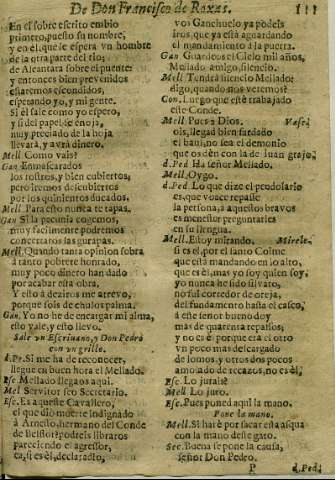 De Don Francisco de Roxas. 111
En el sobre escrito embio
primero, puesto su nombre,
y en èl, que le espera vn hombre
de la otra parte del rio;
de Alcantara sobre el puente;
y entonces bien prevenidos
estaremos escondidos,
esperando yo, y mi gente.
Si èl sale como yo espero,
y si del papel se enoja,
muy preciado de la hoja
llevarà, y avrà dinero.
Mell. Como vais?
Gan. Enmascarados
los rostros, y bien cubiertos,
pero iremos descubiertos
por los quinientos ducados.
Mell. Para esto nunca te tapas.
Gan. Si la pecunia cogemos,
muy facilmente podremos
concertaros las gurapas.
Mell. Quando tanta opinion sobra
à tanto pobrete honrado,
muy poco dinero han dado
por acabar esta obra.
Y esto à deziros me atrevo,
porque sois de chulo palma.
Gan. Yo no he de encargar mi alma,
esto vale, y esto llevo.
Sale vn Escrivano, y Don Pedro
con vn grillo.
d.Pe. Si me ha de reconocer,
llegue en buen hora el Mellado.
Esc. Mellado llegaos aqui.
Mel. Servitor seo Secretario.
Esc. Es aquese Cavallero,
el que diò muerte indignado
à Arnesto, hermano del Conde
de Belflor? podreis libraros
pareciendo el agressor,
ea, si es èl, declaradlo,
vos Ganchuelo ya podeis
iros, que ya està aguardando
el mandamiento à la puerta.
Gan Guardeos el Cielo mil años,
Mellado amigo, silencio.
Mell Tendrà silencio Mellado:
digo, quando nos veremos?
Con. Luego que estè trabajado
este Conde.
Mell. Pues à Dios. Vase.
ois, llegad bien fardado
el baul, no sea el demonio
que os dèn con la de Iuan grajo.
d.Ped Ida señor Mellado.
Mell. Oygo.
d.Ped. Lo que dize el peodolario
es, que voace repasse
la persona, à aquestos bravos
es menester preguntarles
en su lengua.
Mell. Estoy mirando. Mirele.
si es el por el santo Colme
que està mandando en lo alto,
que es èl, mas yo soy quien soy,
yo nunca he sido silvato,
no fui corredor de oreja,
del fundamento hasta el casco,
à este señor bueno doy
mas de quarenta repassos,
y no es èl porque era el otro
vn poco mas delcargado
de lomos, y otros dos pocos
amolado de reçazos, no es èl,
Esc. Lo jurais?
Mell Lo juro.
Esc. Pues poned aquì la mano.
Pone la mano.
Mell. Si harè por sacar esta asqua
con la mano deste gato.
Sec. Buena se pone la causa,
señor Don Pedro.
P d.Ped.